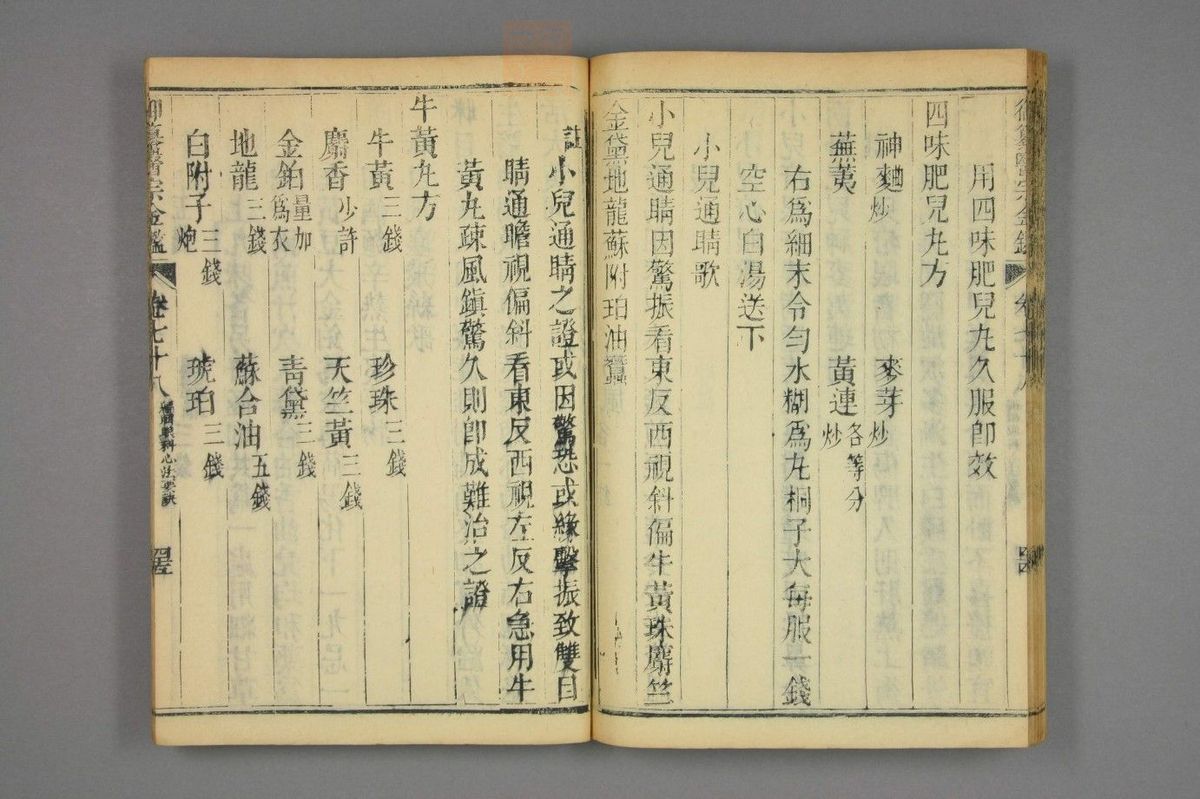 用四味肥兒丸久服卽效
四味肥兒丸方
神麯炒 麥芽炒
蕪荑 黃連炒 各等分
右爲細末令勻水糊爲丸桐子大每服一錢
空心白湯送下
小兒通睛歌
小兒通睛因驚振看東反西視斜偏牛黃珠麝竺
金黛地龍蘇附珀油蠶
註小兒通睛之證或因驚恐或緣擊振致雙目
睛通瞻視偏斜看東反西視左反右急用牛
黃丸疎風鎭驚久則卽成難治之證
牛黃丸方
牛黃三錢 珍珠三錢
麝香少許 天竺黃三錢
金鉑量加爲衣 靑黛三錢
地龍三錢 蘇合油五錢
白附子炮三錢 琥珀三錢
御纂醫宗金鑑 卷七十八 編輯眼科心法要訣